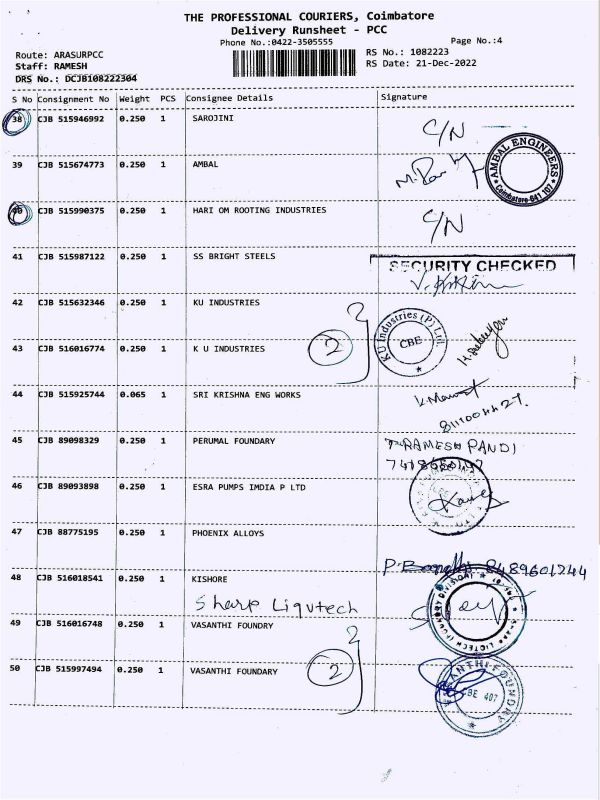 THE PROFESSIONAL COURIERS, Coimbatore
Delivery Runsheet - PCC
Phone No.:0422-3505555
Page No.:4
Route: ARASURPCC
RS No.: 1082223
Staff: RAMESH
RS Date: 21-Dec-2022
DRS No.: DCJB108222304
S No Consignment No Weight PCS Consignee Details Signature
38 CJB 515946992 0.250 1 SAROJINI C/N
39 CJB 515674773 0.250 1 AMBAL
AMBAL ENGINEERS * Coimbatore-641 107 *
40 CJB 515990375 0.250 1 HARI OM ROOTING INDUSTRIES C/N
41 CJB 515987122 0.250 1 SS BRIGHT STEELS
SECURITY CHECKED
42 CJB 515632346 0.250 1 KU INDUSTRIES
2
KU Industries (P) Ltd. CBE *
43 CJB 516016774 0.250 1 K U INDUSTRIES
44 CJB 515925744 0.065 1 SRI KRISHNA ENG WORKS
45 CJB 89098329 0.250 1 PERUMAL FOUNDARY
T.RAMESH PANDI
46 CJB 89093898 0.250 1 ESRA PUMPS IMDIA P LTD
47 CJB 88775195 0.250 1 PHOENIX ALLOYS
8489601244
48 CJB 516018541 0.250 1 KISHORE
Sharp Liqutech
49 CJB 516016748 0.250 1 VASANTHI FOUNDRY
2
50 CJB 515997494 0.250 1 VASANTHI FOUNDARY